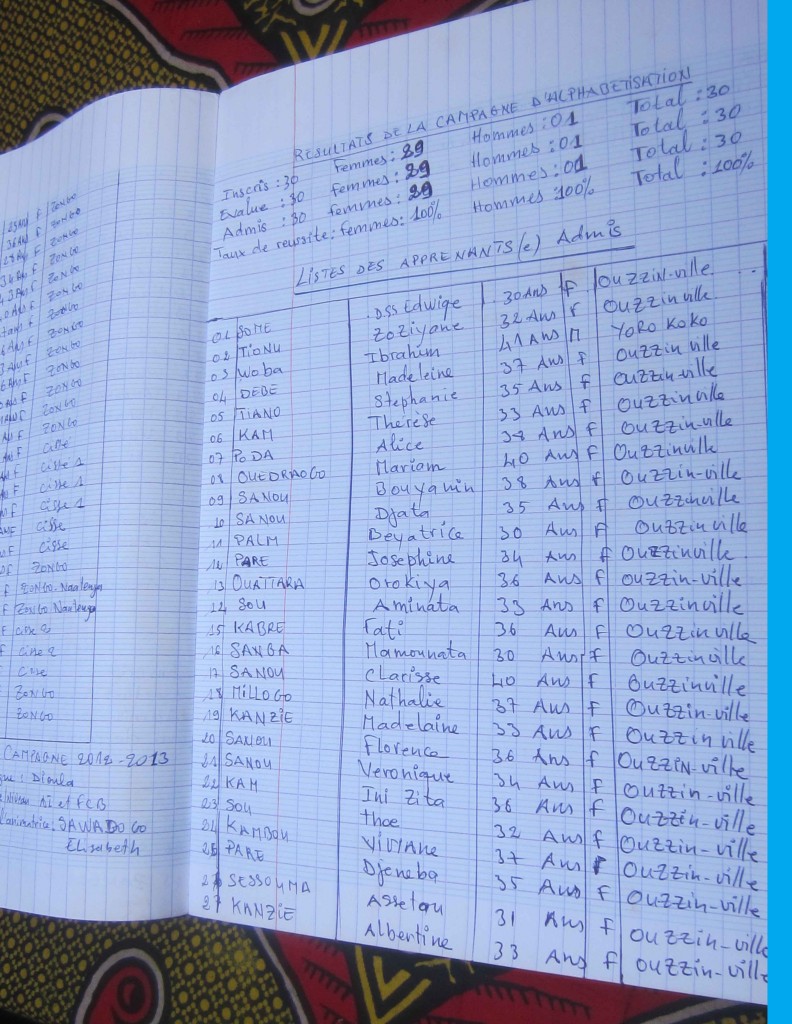 23 Ans F ZONGO
36 Ans F ZONGO
F ZONGO
F ZONGO
F ZONGO
F ZONGO
ZONGO
F ZONGO
F ZONGO
F ZONGO
F ZONGO
F ZONGO
F Cisse
F Cisse 1
F Cisse 1
F Cisse 1
F Cisse
F Cisse
F ZONGO
F ZONGO-Naalenga
F ZONGO Naalenga
F Cisse 2
F Cisse 2
F Cisse
F ZONGO
ZONGO
CAMPAGNE 2012-2013
: Dioula
AI et FCB
L'animatrice: SAWADOGO
Elisabeth
RESULTATS DE LA CAMPAGNE D'ALPHABETISATION
Inscris : 30 Femmes : 29 Hommes : 01 Total : 30
Evalue : 30 femmes : 29 Hommes : 01 Total : 30
Admis : 30 femmes : 29 Hommes : 01 Total : 30
Taux de reussite: femmes: 100% Hommes 100% Total : 100%
LISTES DES APPRENANTS(e) Admis
01 SOME Dss Edwige 30 Ans f Ouzzin-ville
02 TIONU Zoziyane 32 Ans f Ouzzinville
03 Woba Ibrahim 41 Ans M YORO KOKO
04 DEBE Madeleine 37 Ans f Ouzzin ville
05 TIANO Stephanie 35 Ans f Ouzzin-ville
06 KAM Therèse 33 Ans f Ouzzinville
07 PODA Alice 38 Ans f Ouzzin-ville
08 OUEDRAOGO Mariam 40 Ans f Ouzzinville
09 SANOU Bouyanin 38 Ans f Ouzzin-ville
10 SANOU Djata 35 Ans f Ouzzinville
11 PALM Beyatrice 30 Ans F Ouzzin ville
12 PARE Josephine 34 Ans f Ouzzinville
13 OUATTARA Orokiya 36 Ans f Ouzzin-ville
14 SOU Aminata 33 Ans f Ouzzinville
15 KABRE Fati 36 Ans f Ouzzinville
16 SANGA Mamounata 30 Ans f Ouzzinville
17 SANOU Clarisse 40 Ans f Ouzzinville
18 MILLOGO Nathalie 37 Ans f Ouzzin-ville
19 KANZIE Madelaine 33 Ans f Ouzzin ville
20 SANOU Florence 36 Ans f OuZZiN-ville
21 SANOU Veronique 34 Ans f Ouzzin-ville
22 KAM Ini Zita 36 Ans f Ouzzin-ville
23 SOU thoe 32 Ans f Ouzzin-ville
24 KAMBOU ViViANe 37 Ans f Ouzzin-ville
25 PARE Djeneba 35 Ans f Ouzzin-ville
26 SESSOUMA Assetou 31 Ans f Ouzzin-ville
27 KANZIE Albertine 33 Ans f Ouzzin-ville